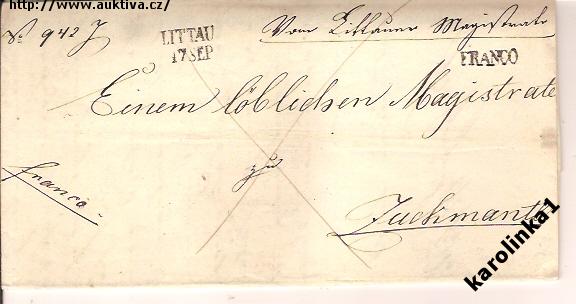 http://www.auktiva.cz/
No 942 J
LITTAU
17 SEP
Vom Littauer Magistrate
FRANCO
Einem löblichen Magistrate
zu
franco
Zuckmantl
karolinka1